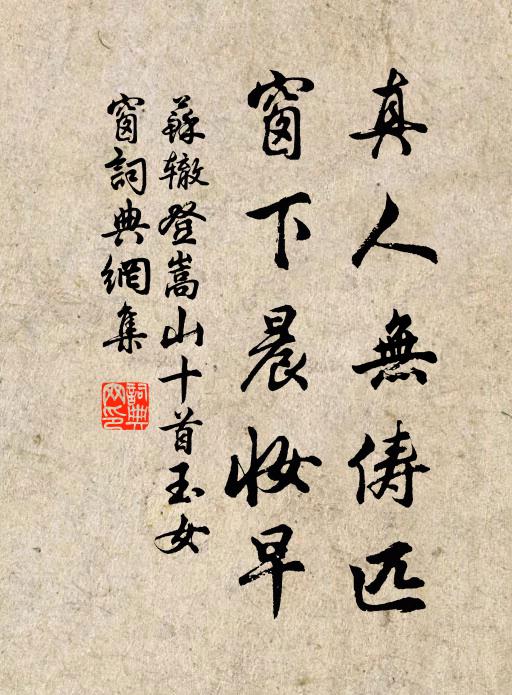 真人無儔匹
窗下晨妝早
蘇辙登嵩山十首玉女
窗詞典網集
詞典网印